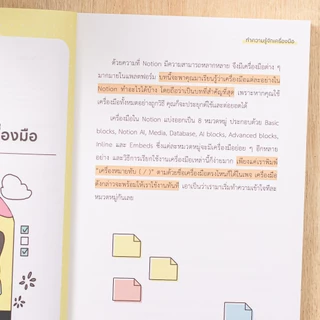 ทำความรู้จักเครื่องมือ
ด้วยความที่ Notion มีความสามารถหลากหลาย จึงมีเครื่องมือต่าง ๆ
มากมายในแพลตฟอร์ม บทนี้จะพาคุณมาเรียนรู้ว่าเครื่องมือแต่ละอย่างใน
Notion ทำอะไรได้บ้าง โดยถือว่าเป็นบทที่สำคัญที่สุด เพราะหากคุณใช้
เครื่องมือทั้งหมดอย่างถูกวิธี คุณก็จะประยุกต์ใช้และต่อยอดได้
เครื่องมือใน Notion แบ่งออกเป็น 8 หมวดหมู่ ประกอบด้วย Basic
blocks, Notion AI, Media, Database, AI blocks, Advanced blocks,
Inline และ Embeds ซึ่งแต่ละหมวดหมู่จะมีเครื่องมือย่อย ๆ อีกหลาย
อย่าง และวิธีการเรียกใช้งานเครื่องมือเหล่านี้ก็ง่ายมาก เพียงแค่เราพิมพ์
"เครื่องหมายทับ ( / )" ตามด้วยชื่อเครื่องมือตรงไหนก็ได้ในเพจ เครื่องมือ
ดังกล่าวจะพร้อมให้เราใช้งานทันที เอาเป็นว่าเรามาเริ่มทำความเข้าใจทีละ
หมวดหมู่กันเลย
องมือ